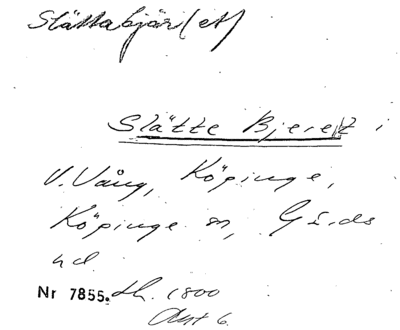 Slättabjär(et)
Slätte Bjeret i
V. Vång, Köpinge,
Köpinge sn, Gärds
hd.
Nr 7855. Lh. 1800
Akt 6.